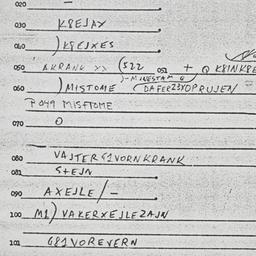 020 –
030 K8EJAX
040 )K8EJXES
050 AKRANK >> (S22 051 + Q K81NK8E
)-MINESTAM Q
060 )MISTOME (DAFER23YOPRUJEN/
P 049 MISFTOME
070 O
080 VAJTER S1VORNKRANK
081 S+EJN
090 AXEJLE/–
100 M1) VAKERXEJLEZAJN
101 G81VOREVERN